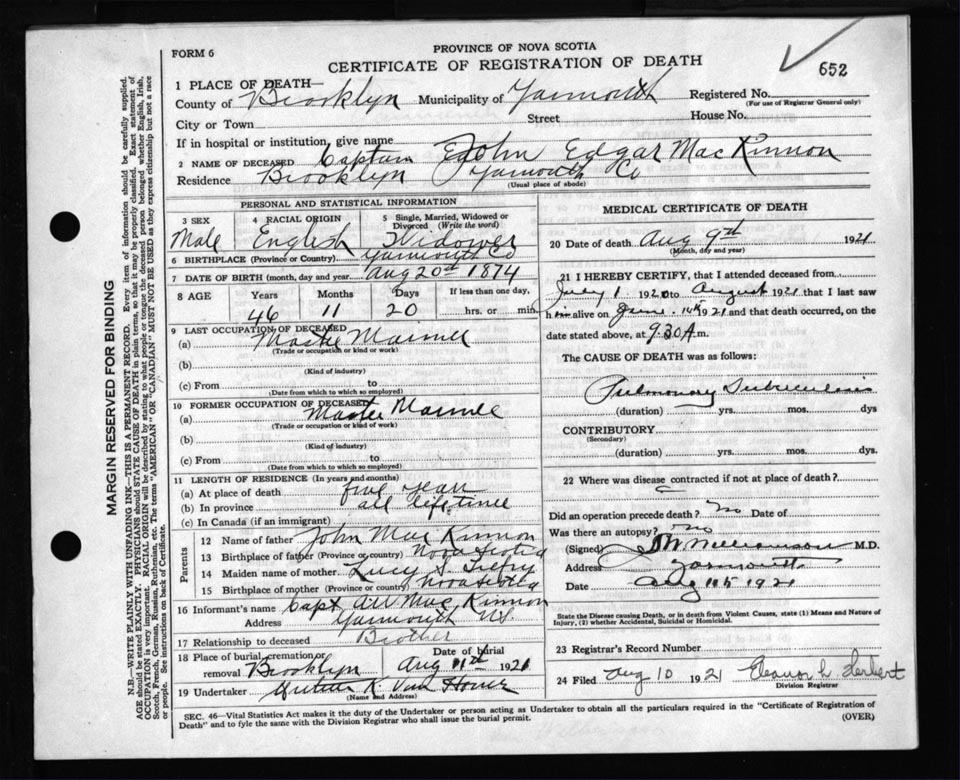 FORM 6
PROVINCE OF NOVA SCOTIA
CERTIFICATE OF REGISTRATION OF DEATH
652
1 PLACE OF DEATH—
County of Brooklyn Municipality of Yarmouth Registered No.
(For use of Registrar General only)
City or Town Street House No.
If in hospital or institution, give name
2 NAME OF DECEASED Captain John Edgar MacKinnon
Residence Brooklyn Yarmouth Co
(Usual place of abode)
PERSONAL AND STATISTICAL INFORMATION
3 SEX
Male
4 RACIAL ORIGIN
English
5 Single, Married, Widowed or Divorced (Write the word)
Widower
6 BIRTHPLACE (Province or Country) Yarmouth Co
7 DATE OF BIRTH (month, day and year) Aug 20th 1874
8 AGE Years Months Days If less than one day,
46 11 20 hrs. or min.
9 LAST OCCUPATION OF DECEASED
(a) Master Mariner
(Trade or occupation or kind of work)
(b)
(Kind of industry)
(c) From to
(Date from which to which so employed)
10 FORMER OCCUPATION OF DECEASED
(a) Master Mariner
(Trade or occupation or kind of work)
(b)
(Kind of industry)
(c) From to
(Date from which to which so employed)
11 LENGTH OF RESIDENCE (In years and months)
(a) At place of death five years
(b) In province all lifetime
(c) In Canada (if an immigrant)
Parents
12 Name of father John MacKinnon
13 Birthplace of father (Province or country) Nova Scotia
14 Maiden name of mother Lucy S.
15 Birthplace of mother (Province or country) Nova Scotia
16 Informant's name Capt AW MacKinnon
Address Yarmouth NS.
17 Relationship to deceased Brother
18 Place of burial, cremation or removal Brooklyn Date of burial Aug 11th 1921
19 Undertaker K. Van Horne
(Name and Address)
MEDICAL CERTIFICATE OF DEATH
20 Date of death Aug 9th 1921
(Month, day and year)
21 I HEREBY CERTIFY, that I attended deceased from
July 1 1920 to August 1921 that I last saw
him alive on June 14th 1921 and that death occurred, on the
date stated above, at 9.30 A.m.
The CAUSE OF DEATH was as follows:
Pulmonary Tuberculosis
(duration) yrs. mos. dys
CONTRIBUTORY
(Secondary)
(duration) yrs. mos. dys.
22 Where was disease contracted if not at place of death?
Did an operation precede death? No Date of
Was there an autopsy? No
(Signed) M.D.
Address Yarmouth
Date Aug 1921
State the Disease causing Death, or in death from Violent Causes, state (1) Means and Nature of
Injury, (2) whether Accidental, Suicidal or Homicidal.
23 Registrar's Record Number
24 Filed Aug 10 1921 Eleanor L Herbert
Division Registrar
SEC. 46—Vital Statistics Act makes it the duty of the Undertaker or person acting as Undertaker to obtain all the particulars required in the "Certificate of Registration of
Death" and to fyle the same with the Division Registrar who shall issue the burial permit.
(OVER)
MARGIN RESERVED FOR BINDING
N.B.—WRITE PLAINLY WITH UNFADING INK—THIS IS A PERMANENT RECORD. Every item of information should be carefully supplied.
AGE should be stated EXACTLY. PHYSICIANS should STATE CAUSE OF DEATH in plain terms, so that it may be properly classified. Exact statement of
OCCUPATION is very important. RACIAL ORIGIN will be described by stating to what people or tongue the deceased person belonged whether English, Irish,
Scotch, French, German, Russian, Ruthenian, etc. The terms "AMERICAN" or "CANADIAN" MUST NOT BE USED as they express citizenship but not a race
or people. See instructions on back of Certificate.